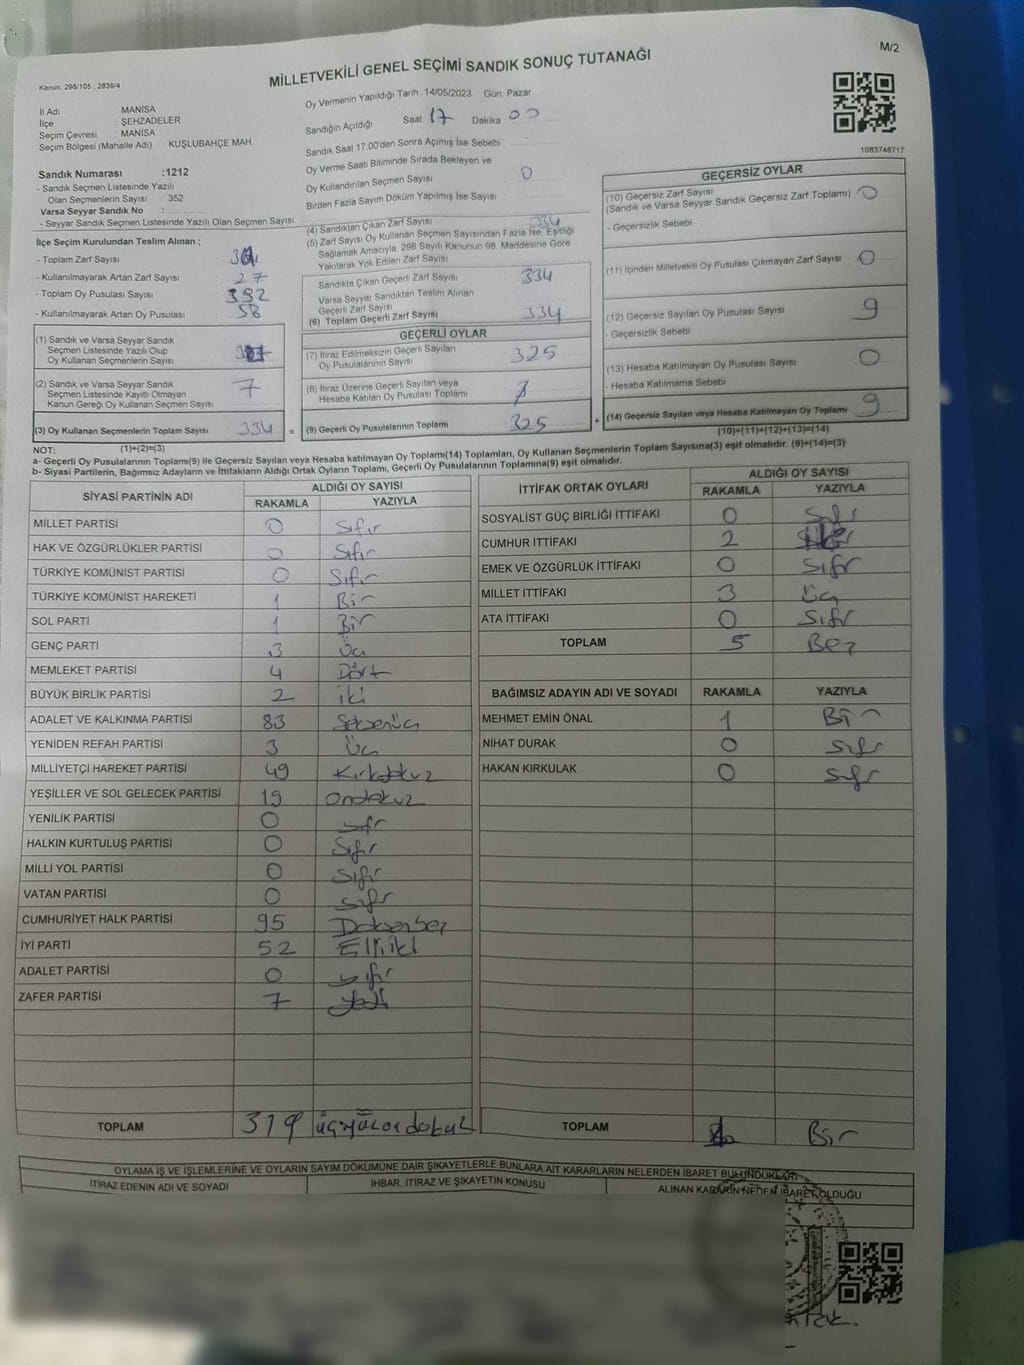 M/2
MİLLETVEKİLİ GENEL SEÇİMİ SANDIK SONUÇ TUTANAĞI
Kanun, 298/105 , 2839/4
İl Adı : MANİSA
İlçe : ŞEHZADELER
Seçim Çevresi : MANİSA
Seçim Bölgesi (Mahalle Adı) : KUŞLUBAHÇE MAH
Oy Vermenin Yapıldığı Tarih :14/05/2023 Gün: Pazar
Sandığın Açıldığı Saat 17 Dakika : 00
Sandık Saat 17.00'den Sonra Açılmış İse Sebebi
Oy Verme Saati Bitiminde Sırada Bekleyen ve
Oy Kullandırılan Seçmen Sayısı 0
Birden Fazla Sayım Döküm Yapılmış İse Sayısı
1083748717
Sandık Numarası :1212
- Sandık Seçmen Listesinde Yazılı
Olan Seçmenlerin Sayısı : 352
Varsa Seyyar Sandık No :
- Seyyar Sandık Seçmen Listesinde Yazılı Olan Seçmen Sayısı
İlçe Seçim Kurulundan Teslim Alınan ;
- Toplam Zarf Sayısı
- Kullanılmayarak Artan Zarf Sayısı 27
- Toplam Oy Pusulası Sayısı 392
- Kullanılmayarak Artan Oy Pusulası 58
(1) Sandık ve Varsa Seyyar Sandık
Seçmen Listesinde Yazılı Olup
Oy Kullanan Seçmenlerin Sayısı
(2) Sandık ve Varsa Seyyar Sandık
Seçmen Listesinde Kayıtlı Olmayan
Kanun Gereği Oy Kullanan Seçmen Sayısı 7
(3) Oy Kullanan Seçmenlerin Toplam Sayısı 334 =
(1)+(2)=(3)
(4) Sandıktan Çıkan Zarf Sayısı 334
(5) Zarf Sayısı Oy Kullanan Seçmen Sayısından Fazla İse, Eşitliği
Sağlamak Amacıyla, 298 Sayılı Kanunun 98. Maddesine Göre
Yakılarak Yok Edilen Zarf Sayısı
Sandıkta Çıkan Geçerli Zarf Sayısı 334
Varsa Seyyar Sandıktan Teslim Alınan
Geçerli Zarf Sayısı
(6) Toplam Geçerli Zarf Sayısı 334
GEÇERLİ OYLAR
(7) İtiraz Edilmeksizin Geçerli Sayılan
Oy Pusulalarının Sayısı 325
(8) İtiraz Üzerine Geçerli Sayılan veya
Hesaba Katılan Oy Pusulası Toplamı
(9) Geçerli Oy Pusulalarının Toplamı 325 +
GEÇERSİZ OYLAR
(10) Geçersiz Zarf Sayısı
(Sandık ve Varsa Seyyar Sandık Geçersiz Zarf Toplamı) 0
- Geçersizlik Sebebi
(11) İçinden Milletvekili Oy Pusulası Çıkmayan Zarf Sayısı 0
(12) Geçersiz Sayılan Oy Pusulası Sayısı 9
- Geçersizlik Sebebi
(13) Hesaba Katılmayan Oy Pusulası Sayısı 0
- Hesaba Katılmama Sebebi
(14) Geçersiz Sayılan veya Hesaba Katılmayan Oy Toplamı 9
(10)+(11)+(12)+(13)=(14)
NOT:
a- Geçerli Oy Pusulalarının Toplamı(9) ile Geçersiz Sayılan veya Hesaba katılmayan Oy Toplamı(14) Toplamları, Oy Kullanan Seçmenlerin Toplam Sayısına(3) eşit olmalıdır. (9)+(14)=(3)
b- Siyasi Partilerin, Bağımsız Adayların ve İttifakların Aldığı Ortak Oyların Toplamı, Geçerli Oy Pusulalarının Toplamına(9) eşit olmalıdır.
SİYASİ PARTİNİN ADI ALDIĞI OY SAYISI
RAKAMLA YAZIYLA
MİLLET PARTİSİ 0 Sıfır
HAK VE ÖZGÜRLÜKLER PARTİSİ 0 Sıfır
TÜRKİYE KOMÜNİST PARTİSİ 0 Sıfır
TÜRKİYE KOMÜNİST HAREKETİ 1 Bir
SOL PARTİ 1 Bir
GENÇ PARTİ 3 Üç
MEMLEKET PARTİSİ 4 Dört
BÜYÜK BİRLİK PARTİSİ 2 iki
ADALET VE KALKINMA PARTİSİ 83 Seksenüç
YENİDEN REFAH PARTİSİ 3 Üç
MİLLİYETÇİ HAREKET PARTİSİ 49 Kırkdokuz
YEŞİLLER VE SOL GELECEK PARTİSİ 19 Ondokuz
YENİLİK PARTİSİ 0 sıfır
HALKIN KURTULUŞ PARTİSİ 0 Sıfır
MİLLİ YOL PARTİSİ 0 Sıfır
VATAN PARTİSİ 0 sıfır
CUMHURİYET HALK PARTİSİ 95 Doksanbeş
İYİ PARTİ 52 Elliiki
ADALET PARTİSİ 0 sıfır
ZAFER PARTİSİ 7 Yedi
TOPLAM 319 üçyüzondokuz
İTTİFAK ORTAK OYLARI ALDIĞI OY SAYISI
RAKAMLA YAZIYLA
SOSYALİST GÜÇ BİRLİĞİ İTTİFAKI 0 Sıfır
CUMHUR İTTİFAKI 2
EMEK VE ÖZGÜRLÜK İTTİFAKI 0 Sıfır
MİLLET İTTİFAKI 3 Üç
ATA İTTİFAKI 0 Sıfır
TOPLAM 5 Beş
BAĞIMSIZ ADAYIN ADI VE SOYADI RAKAMLA YAZIYLA
MEHMET EMİN ÖNAL 1 Bir
NİHAT DURAK 0 Sıfır
HAKAN KIRKULAK 0 Sıfır
TOPLAM Bir
OYLAMA İŞ VE İŞLEMLERİNE VE OYLARIN SAYIM DÖKÜMÜNE DAİR ŞİKAYETLERLE BUNLARA AİT KARARLARIN NELERDEN İBARET BULUNDUKLARI
İTİRAZ EDENİN ADI VE SOYADI İHBAR, İTİRAZ VE ŞİKAYETİN KONUSU ALINAN KARARIN NEDEN İBARET OLDUĞU